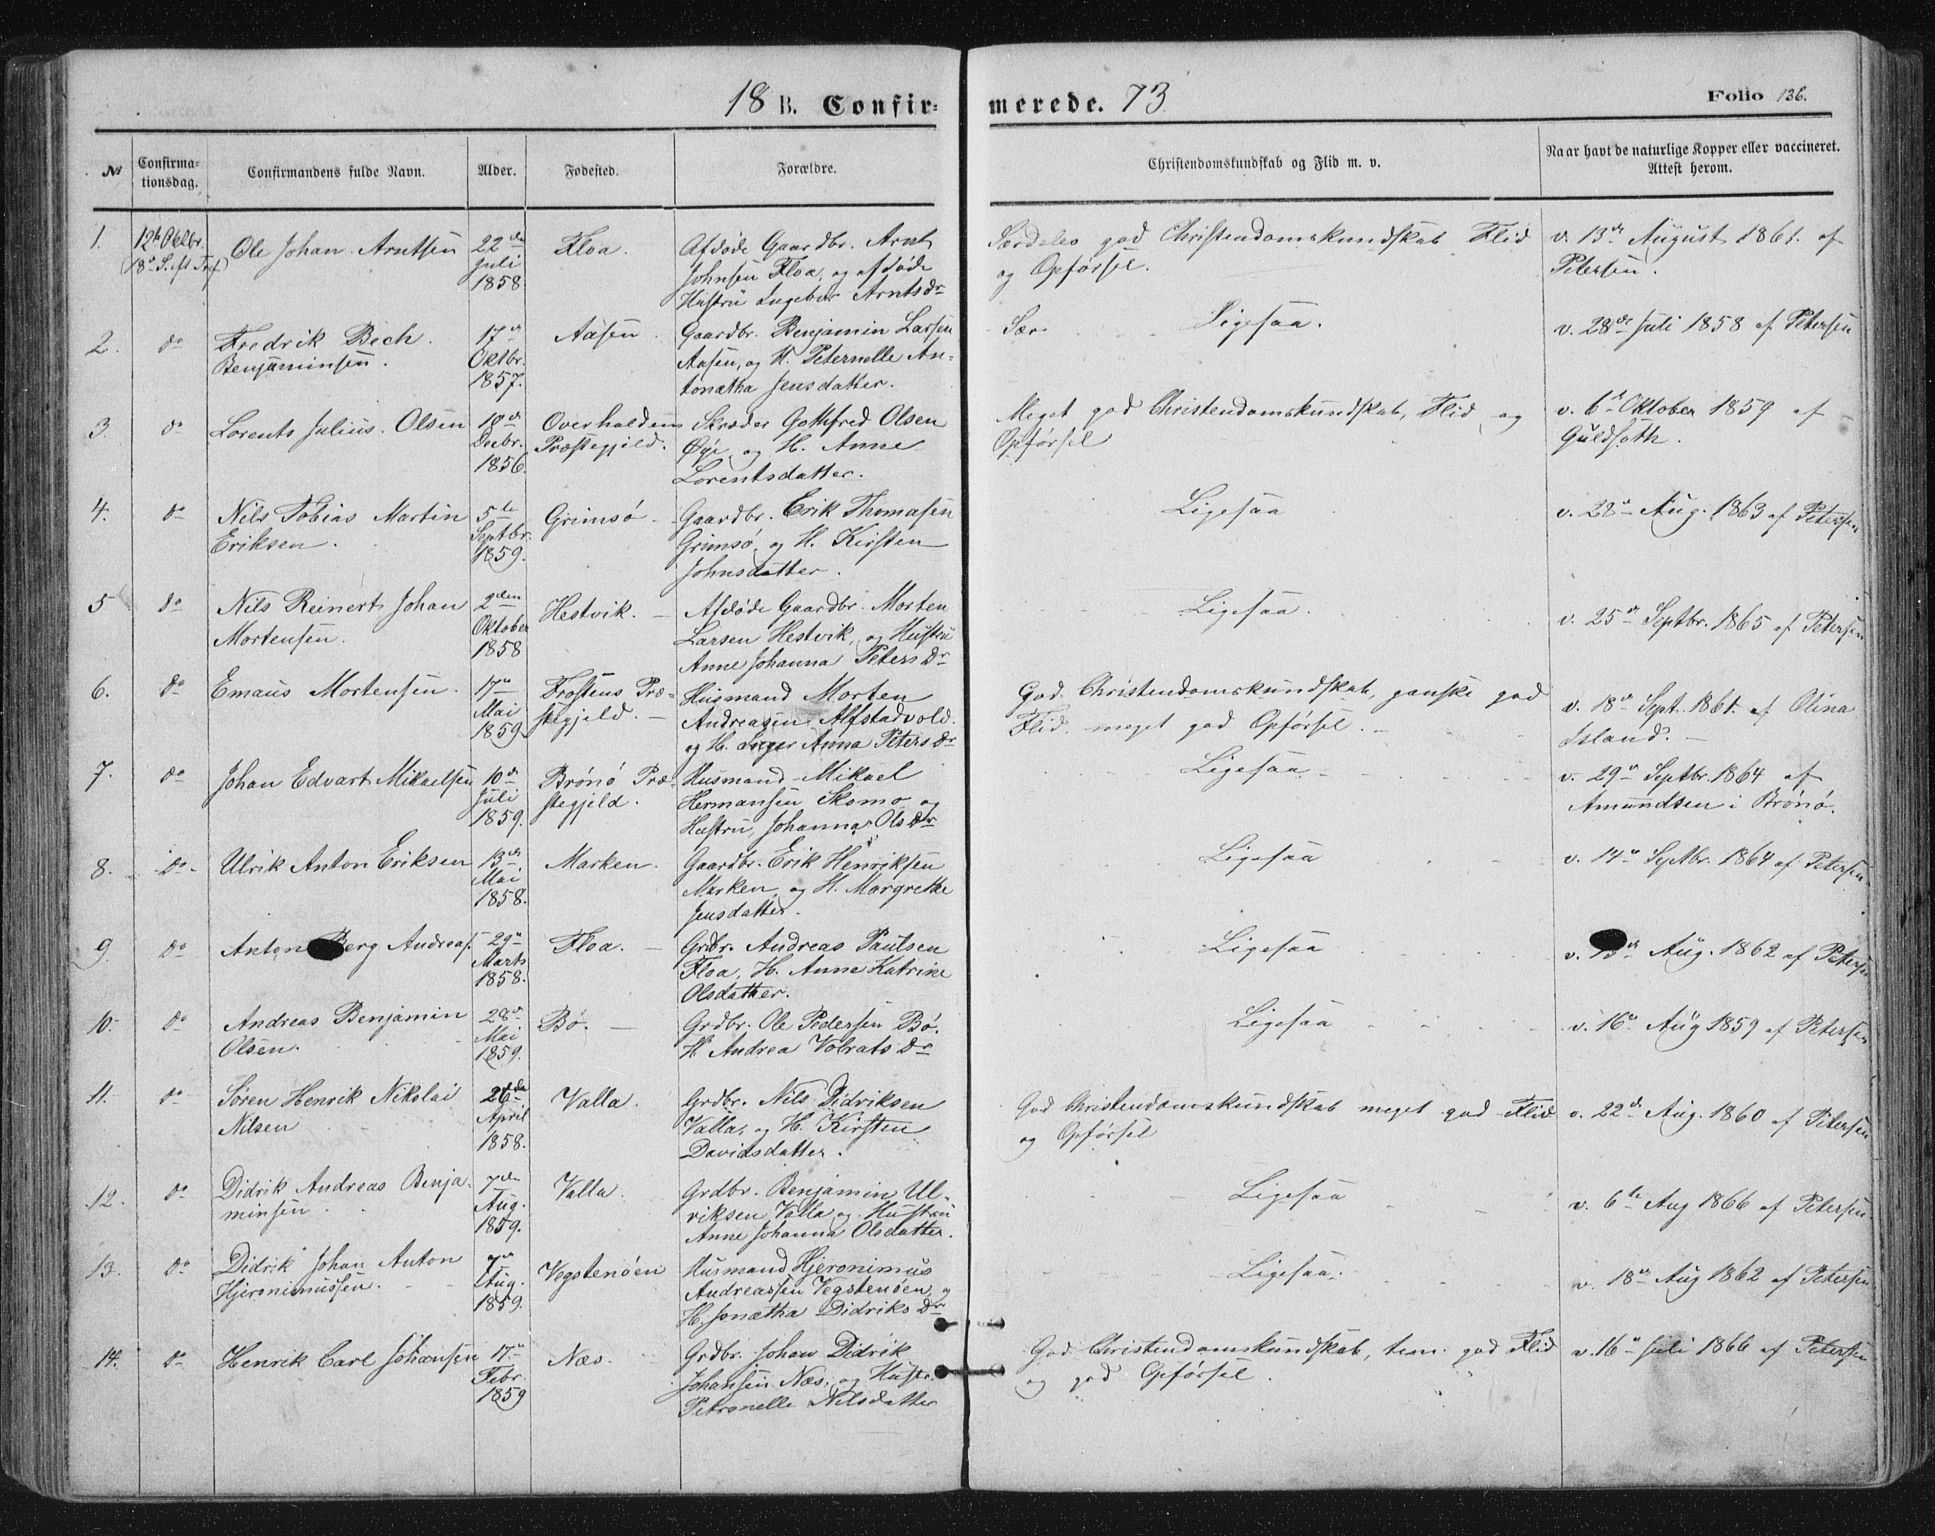 18 B. Confir- merede. 73 Folio 136.
No Confirma-tionsdag. Confirmandens fulde Navn. Alder. Fødested. Forældre. Christendomskundskab og Flid m. v. Naar havt de naturlige Kopper eller vaccineret. Attest herom.
1. 12te Oktbr. Ole Johan Arntsen 22de Floa. Afdøde Gaardbr. Arnt Særdeles god Christendomskundskab Flid v. 13de August 1861. af
(18de S. eft Tref) Juli Johnsen Floa, og afdøde og Opførsel. Petersen.
1858 Hustru Ingebor Arntsdr
2. do Fredrik Bech 17de Aasen. Gaardbr. Benjamin Larsen Sær Ligesaa. v. 28de Juli 1858 af Petersen
Benjaminsen. Oktbr. Aasen, og H. Peternelle An-
1857. tonætha Jensdatter.
3. do Lorents Julius Olsen 18de Overhalden Skræder Gottfred Olsen Meget god Christendomskundskab, Flid og v. 6te Oktober 1859 af
Decbr. Præstegjeld. Øye og H. Anne Opførsel Guldseth.
1856. Lorentsdatter.
4. do Nils Tobias Martin 5te Grimsø Gaardbr. Erik Thomasen Ligesaa v. 28de Aug. 1863 af Petersen
Eriksen. Septbr. Grimsø, og H. Kirsten
1859. Johnsdatter.
5 do Nils Reinert Johan 2den Hestvik. Afdøde Gaardbr. Morten Ligesaa. v. 25de Septbr. 1865 af Petersen
Mortensen. Oktober Larsen Hestvik, og Hustru
1858 Anne Johanna Petersdr
6. do Emaus Mortensen. 17de Frostens Præ- Husmand Morten God Christendomskundskab, ganske god v. 18de Sept. 1861. af Olina
Mai stegjeld. Andreasen Alfstadvold. Flid, meget god Opførsel. Island.
1859 og H. Inger Anna Petersdr
7. do Johan Edvart Mikaelsen 10de Brønø Præ- Husmand Mikael Ligesaa v. 29de Septbr. 1864 af
Juli stegjeld. Hermansen Skomo og Amundsen i Brønø.
1859. Hustru, Johanna Olsdr
8. do Ulrik Anton Eriksen 13de Marken. Gaardbr. Erik Henriksen Ligesaa v. 14de Septbr. 1864 af Petersen
Mai Marken, og H. Margrethe
1858. Jensdatter.
9. do Anton Berg Andreas. 29de Floa. Grdbr. Andreas Paulsen Ligesaa v. 13de Aug. 1862 af Petersen
Marts Floa, H. Anne Katrine
1858. Olsdatter.
10. do Andreas Benjamin 28de Bø. Grdbr. Ole Pedersen Bø. Ligesaa v. 16de Aug 1859 af Petersen
Olsen. Mai H. Andrea Volratsdr
1859.
11. do Søren Henrik Nikolai 26de Valla. Grdbr. Nils Didriksen God Christendomskundskab meget god Flid v. 22de Aug. 1860 af Petersen
Nilsen April Valla, og H. Kirsten og Opførsel
1858. Davidsdatter.
12. do Didrik Andreas Benja- 7de Valla. Grdbr. Benjamin Ul- Ligesaa v. 6te Aug 1866 af Petersen
minsen. Aug. riksen Valla og Hustru
1859. Anne Johanna Olsdatter.
13. do Didrik Johan Anton 7de Vegstenøen Husmand Hjeronimus Ligesaa. v. 18de Aug 1862 af Petersen
Hjeronimussen. Aug. Andreassen Vegstenøen, og
1859. H. Jonætha Didriksdr
14. do Henrik Carl Johansen 17de Næs. Grdbr. Johan Didrik God Christendomskundskab, tem. god Flid v. 16de Juli 1866 af Petersen
Febr. Johansen Næs, og Hustr. og god Opførsel.
1859 Petronelle Nilsdatter